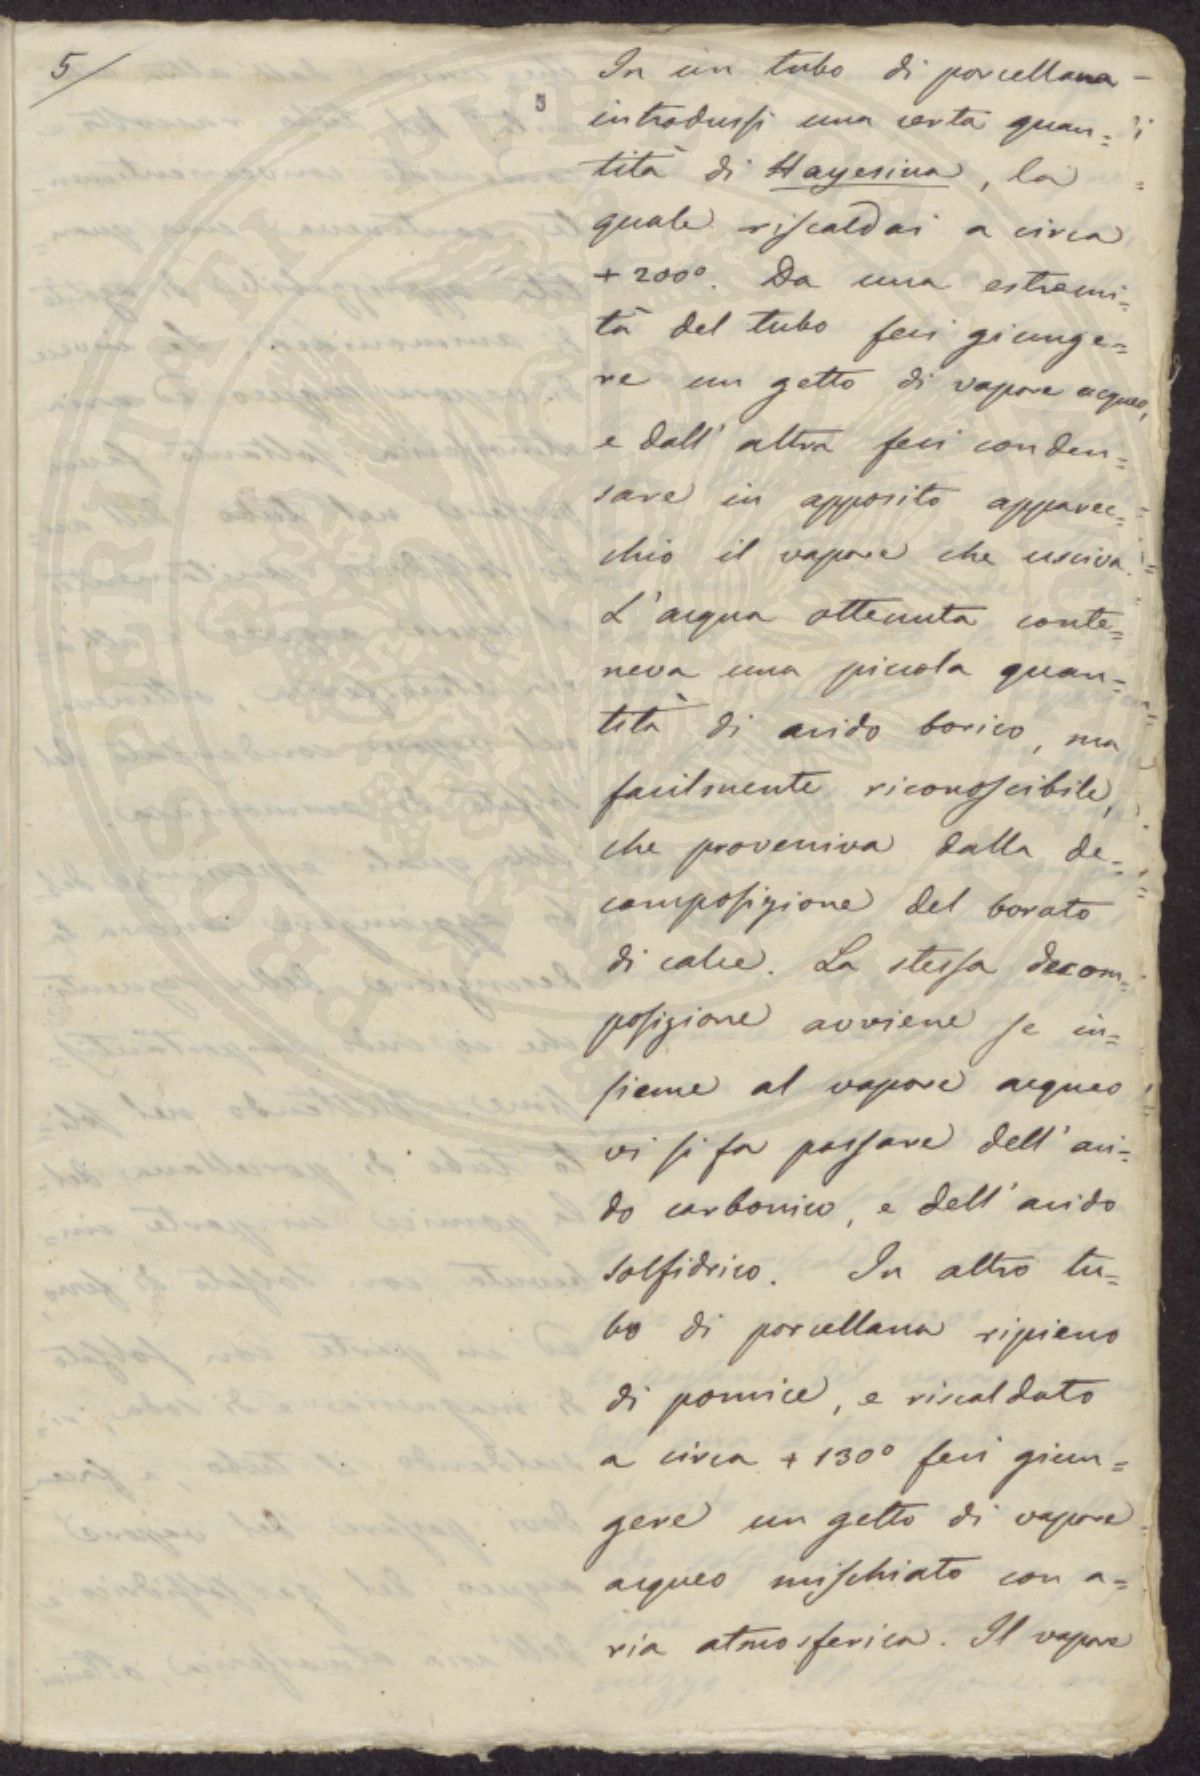 5/
5
In un tubo di porcellana
introdussi una certa quan=
tità di Hayesina, la
quale riscaldai a circa
+200°. Da una estremi=
tà del tubo feci giunge=
re un getto di vapore acqueo,
e dall' altra feci conden=
sare in apposito apparec=
chio il vapore che usciva.
L'acqua ottenuta conte=
neva una piccola quan=
tità di acido borico, ma
facilmente riconoscibile,
che proveniva dalla de=
composizione del borato
di calce. La stessa decom=
posizione avviene se in=
sieme al vapore acqueo
vi si fa passare dell' aci=
do carbonico, e dell' acido
solfidrico. In altro tu=
bo di porcellana ripieno
di pomice, e riscaldato
a circa +130° feci giun=
gere un getto di vapore
acqueo mischiato con a=
ria atmosferica. Il vapore